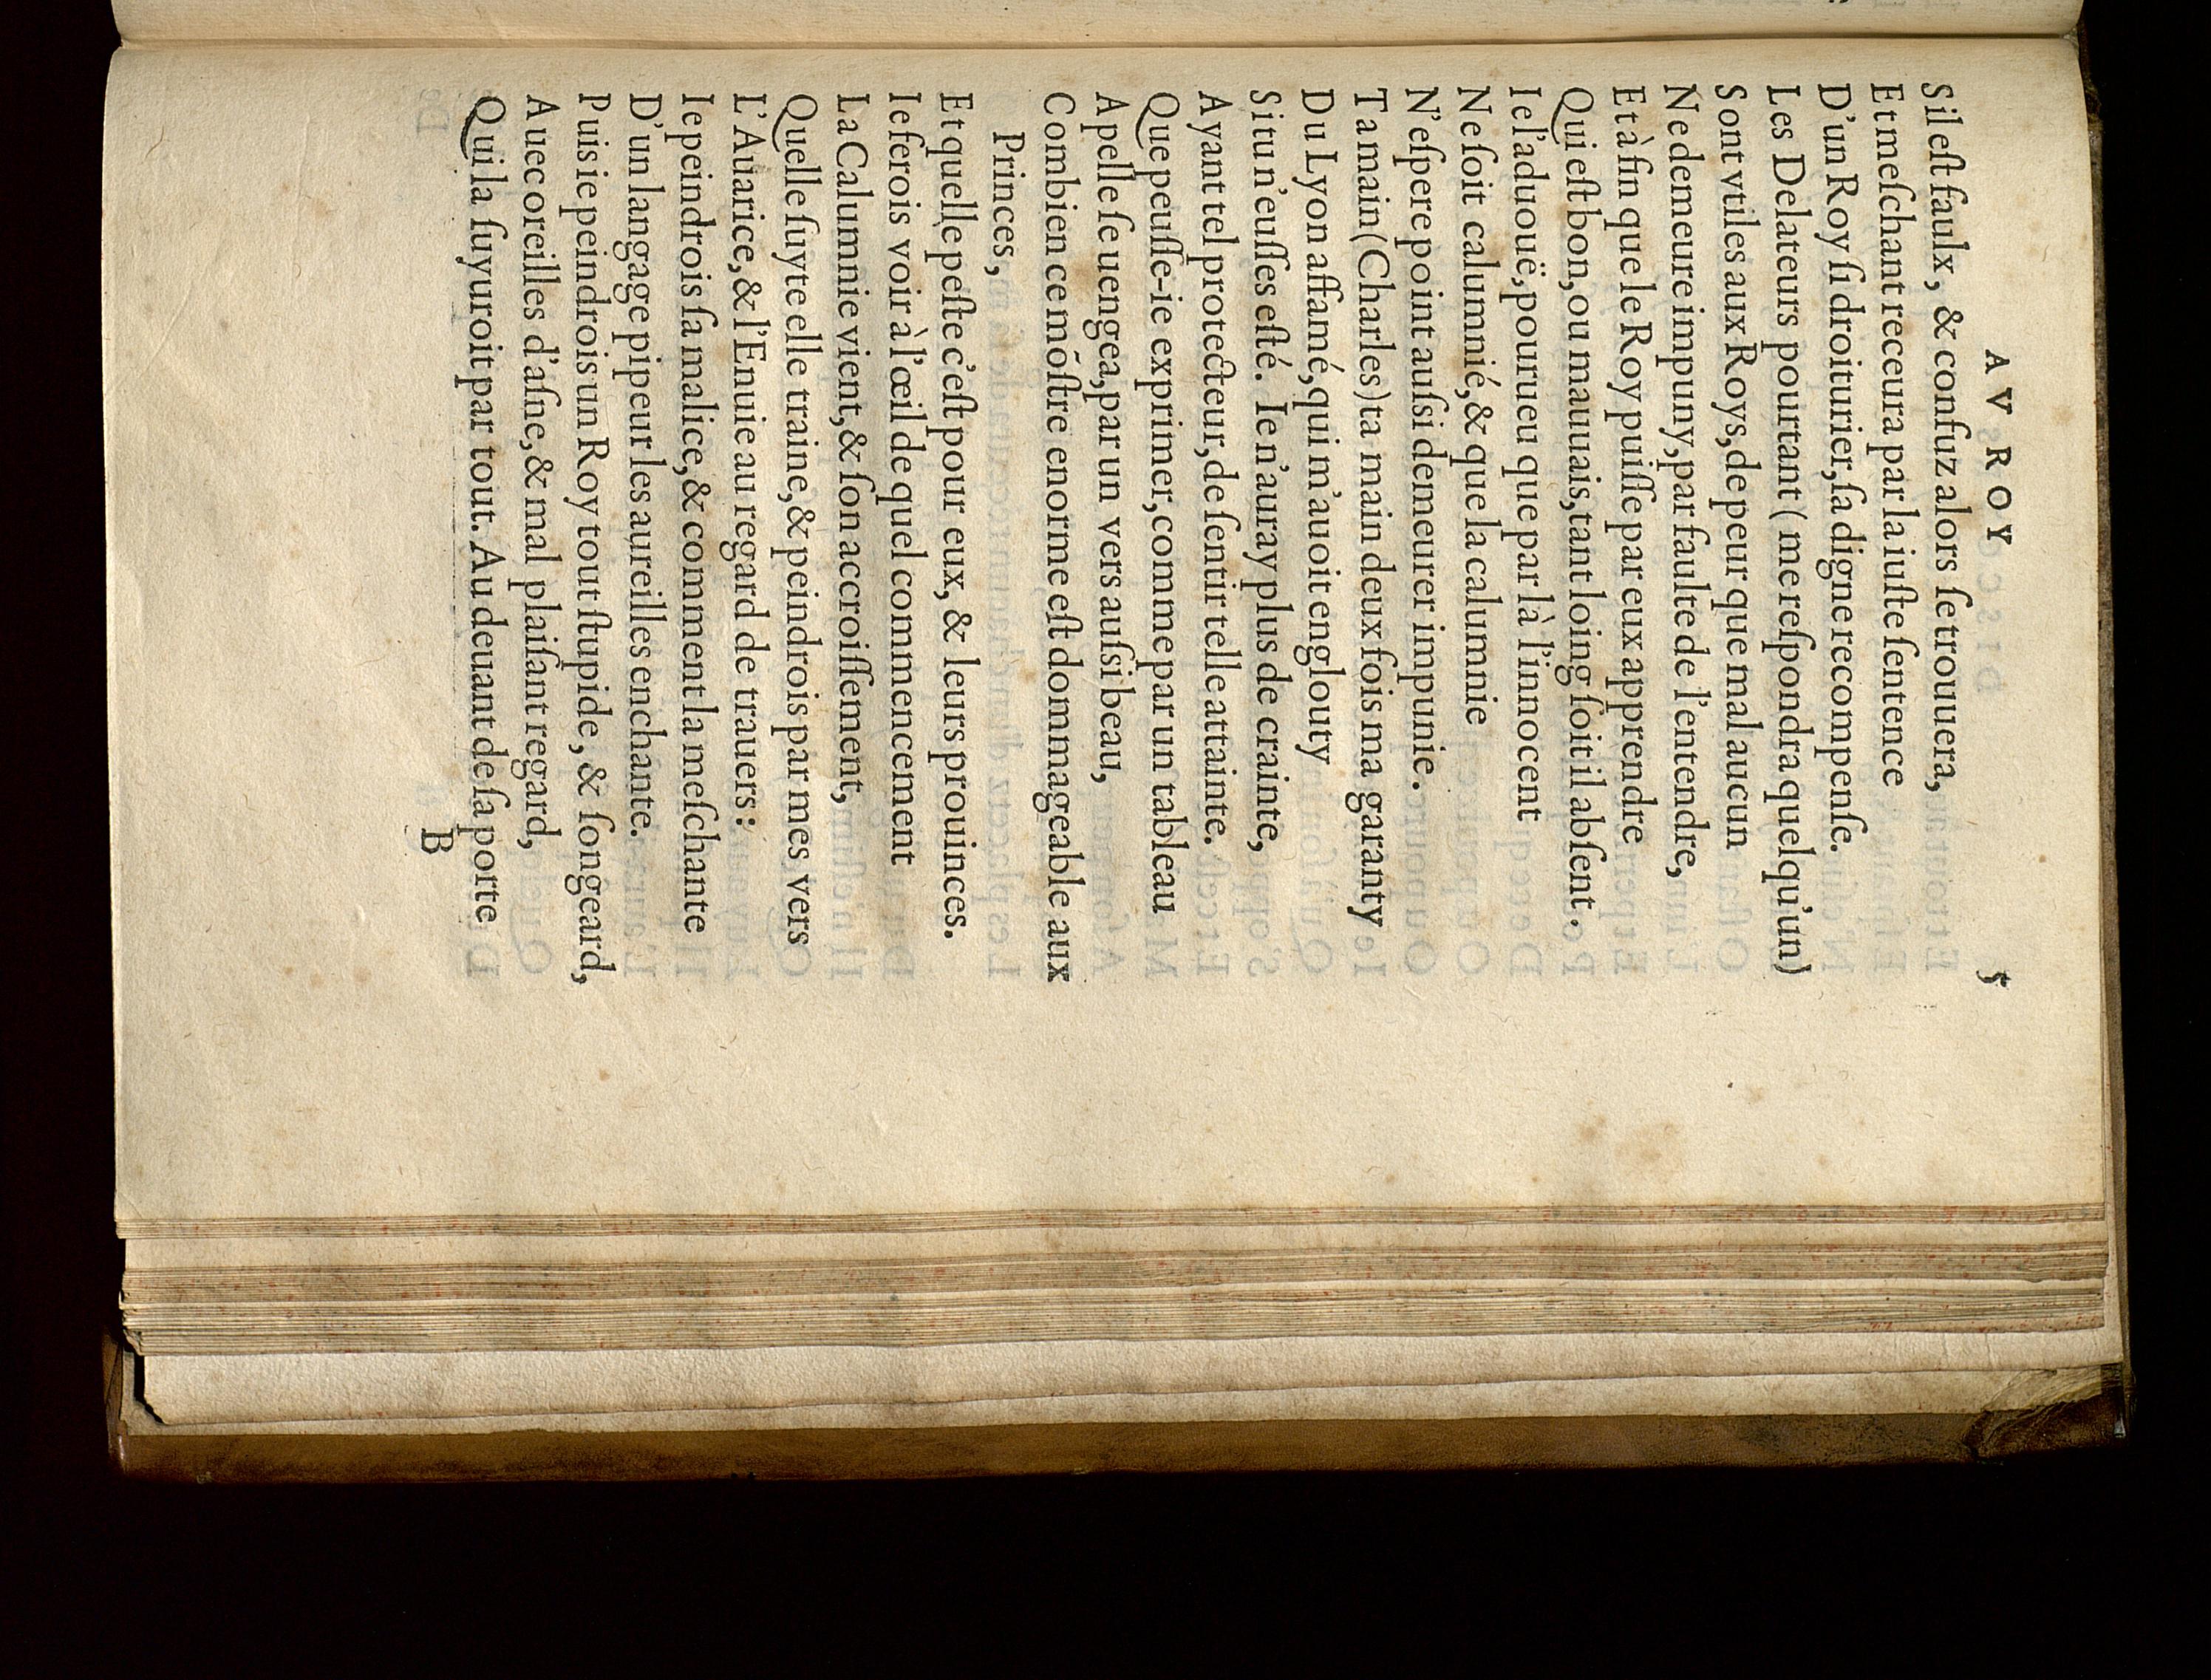 AV ROY 5
Sil eſt faulx, & confuz alors ſe trouuera,
Et meſchant receura par la iuſte ſentence
D'un Roy ſi droiturier, ſa digne recompenſe.
Les Delateurs pourtant (me reſpondra quelqu'un)
Sont vtiles aux Roys, de peur que mal aucun
Ne demeure impuny, par faulte de l'entendre,
Et à fin que le Roy puiſſe par eux apprendre
Qui eſt bon, ou mauuais, tant loing ſoit il abſent.
Ie l'aduouë, pourueu que par là l'innocent
Ne ſoit calumnié, & que la calumnie
N'eſpere point auſsi demeurer impunie.
Ta main (Charles) ta main deux fois ma garanty
Du Lyon affamé, qui m'auoit englouty
Si tu n'euſſes eſté. Ie n'auray plus de crainte,
Ayant tel protecteur, de ſentir telle attainte.
Que peuſſe-ie exprimer, comme par un tableau
Apelle ſe uengea, par un vers auſsi beau,
Combien ce mõſtre enorme eſt dommageable aux
Princes,
Et quelle peſte c'eſt pour eux, & leurs prouinces.
Ie ferois voir à l'œil de quel commencement
La Calumnie vient, & ſon accroiſſement,
Quelle ſuyte elle traine, & peindrois par mes vers
L'Auarice, & l'Enuie au regard de trauers:
Ie peindrois ſa malice, & comment la meſchante
D'un langage pipeur les aureilles enchante.
Puis ie peindrois un Roy tout ſtupide, & ſongeard,
Auec oreilles d'aſne, & mal plaiſant regard,
Qui la ſuyuroit par tout. Au deuant de ſa porte
B